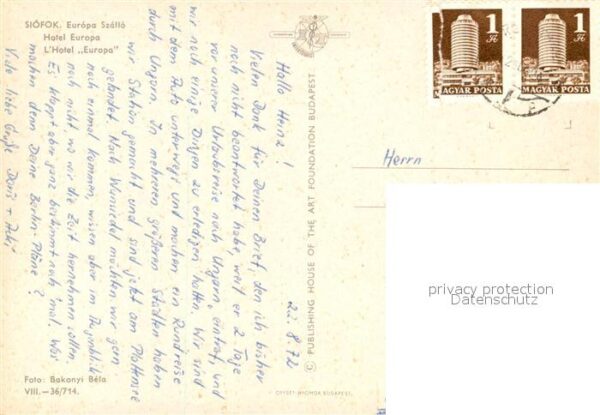 SIÓFOK. Európa Szálló
Hotel Europa
L'Hotel „Europa"
22. 8. 72
Hallo Heinz!
Vielen Dank für Deinen Brief, den ich bisher
noch nicht beantwortet habe, weil er 2 Tage
vor unserer Urlaubsreise nach Ungarn eintraf und
wir noch einige Dinge zu erledigen hatten. Wir sind
mit dem Auto unterwegs und machen ein Rundreise
durch Ungarn. In mehreren größeren Städten haben
wir Station gemacht und sind jetzt am Plattensee
gelandet. Nach Wunsiedel möchten wir gern
noch einmal kommen, wissen aber im Augenblick
noch nicht, wo wir die Zeit hernehmen sollen.
Es klappt aber ganz bestimmt noch 'mal. Was
machen denn Deine Berlin-Pläne?
Viele liebe Grüße Doris +
Foto: Bakonyi Béla
VIII.—36/714.
© PUBLISHING HOUSE OF THE ART FOUNDATION BUDAPEST
OFFSET-NYOMDA BUDAPEST
1 Ft
MAGYAR POSTA
1 Ft
MAGYAR POSTA
Herrn
privacy protection
Datenschutz